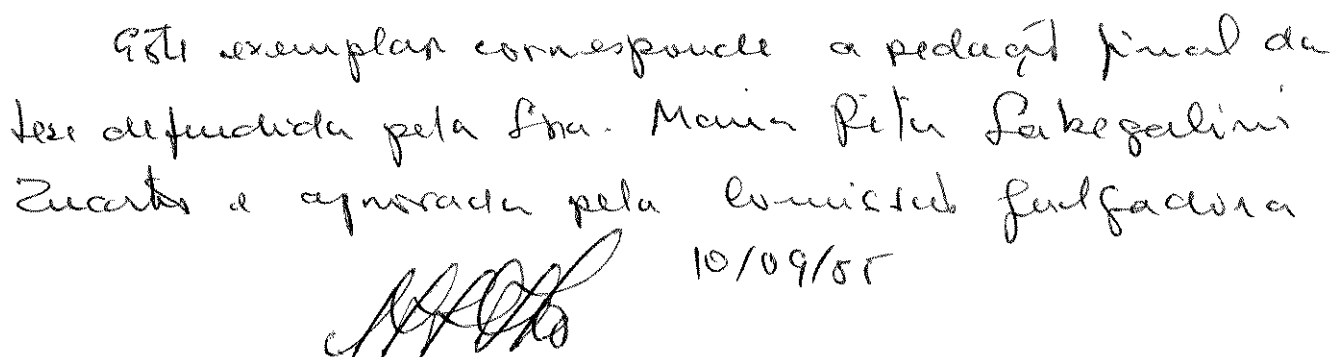 Este exemplar corresponde a redação final da
tese defendida pela Sra. Maria Rita
e aprovada pela Comissão Julgadora
10/09/85